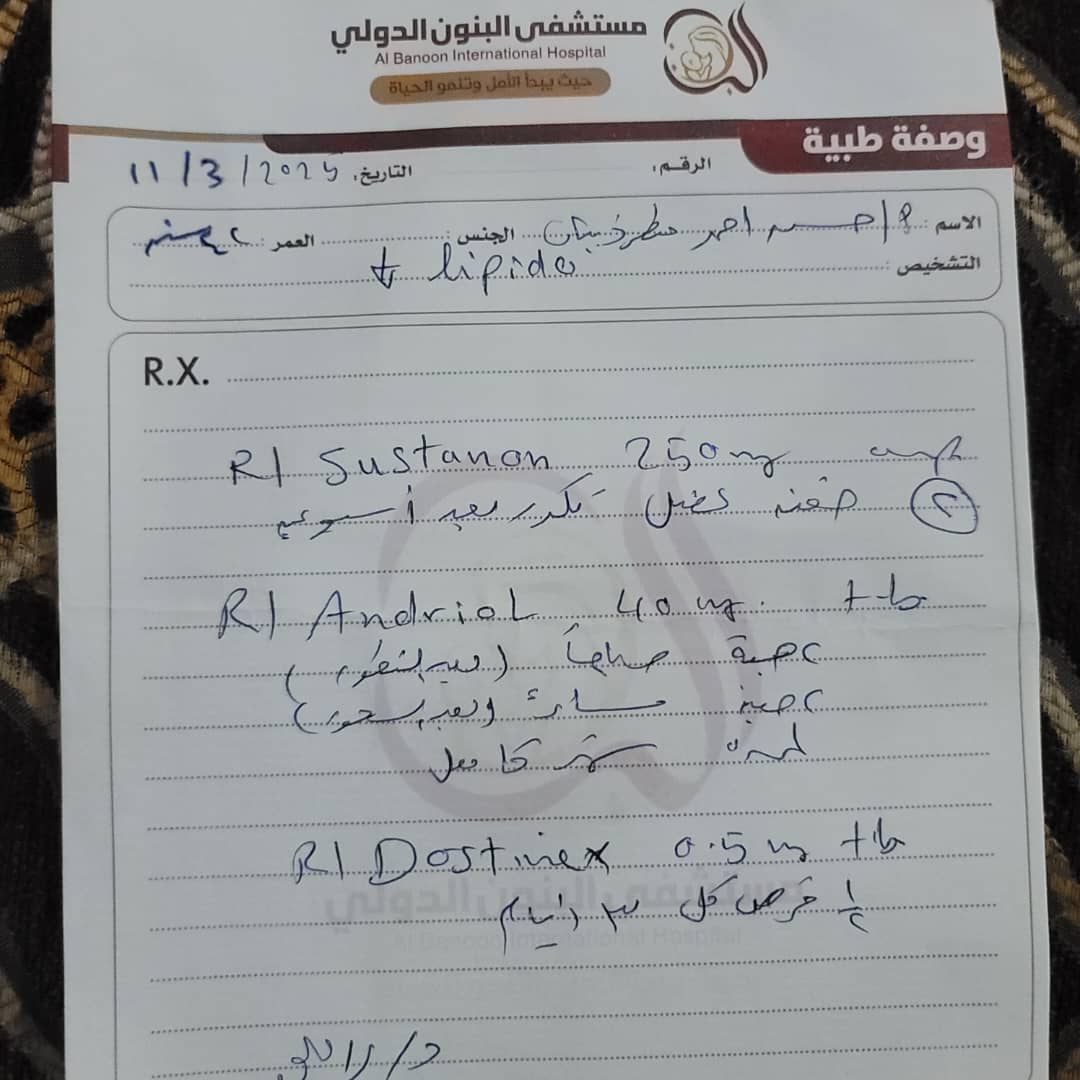 مستشفى البنون الدولي
Al Banoon International Hospital
حيث يبدأ الأمل وتنمو الحياة
وصفة طبية
الرقم: التاريخ: 11/3/2025
الاسم: احمد الجنس: العمر: سنه
التشخيص: ↓ lipido
R.X.
R/ Sustanon 250mg amp
٢ حقنه عضل تكرر بعد أسبوعين
R/ Andriol 40 mg. tab
٢ حبة صباحاً (بعد الفطور)
٢ حبة مساءً (بعد السحور)
لمدة شهر كامل
R/ Dostinex 0.5 mg tab
½ قرص كل ٣ أيام
مستشفى البنون الدولي
Al Banoon International Hospital
د/